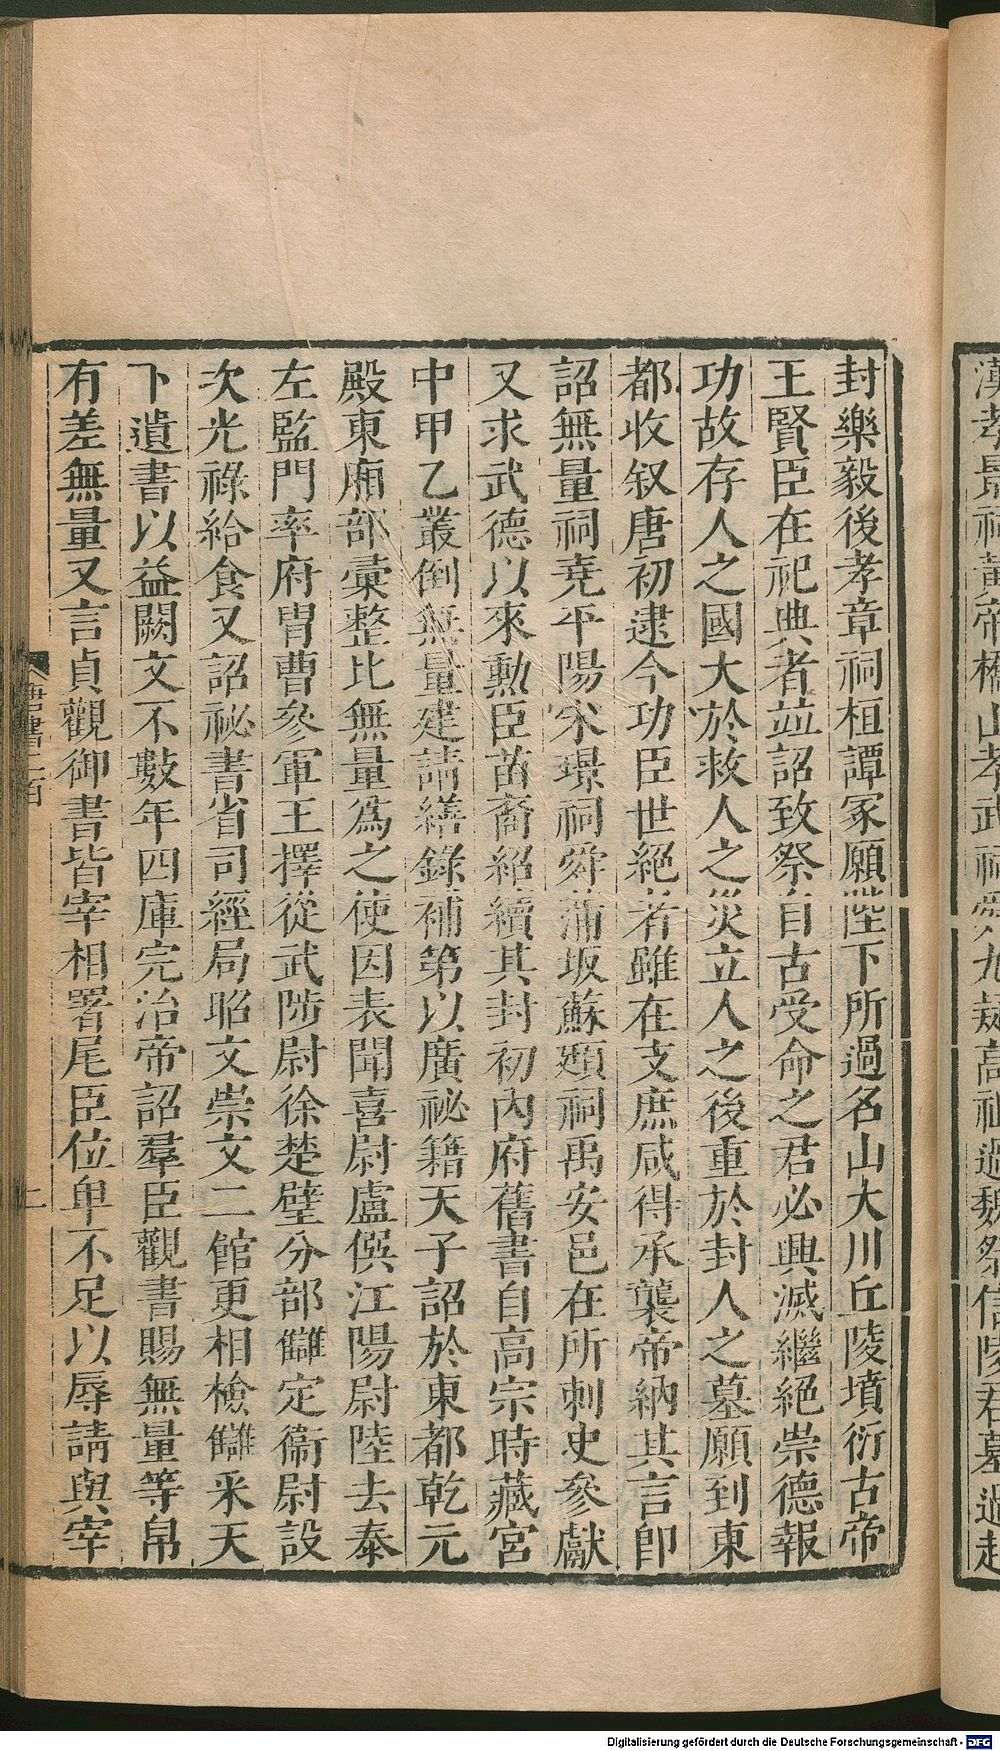 封樂毅後孝章祠桓譚冢願陛下所過名山大川丘陵墳衍古帝
王賢臣在祀典者並詔致祭自古受命之君必興滅繼絕崇德報
功故存人之國大於救人之災立人之後重於封人之墓願到東
都收叙唐初逮今功臣世絕者雖在支庶咸得承襲帝納其言卽
詔無量祠堯平陽宋璟祠舜蒲坂蘇頲祠禹安邑在所刺史參獻
又求武德以來勲臣苗裔紹續其封初內府舊書自高宗時藏宮
中甲乙叢倒無量建請繕錄補第以廣祕籍天子詔於東都乾元
殿東廂部彙整比無量爲之使因表聞喜尉盧僎江陽尉陸去泰
左監門率府胄曹參軍王擇從武陟尉徐楚璧分部讎定衞尉設
次光祿給食又詔祕書省司經局昭文崇文二館更相檢讎采天
下遺書以益闕文不數年四庫完治帝詔羣臣觀書賜無量等帛
有差無量又言貞觀御書皆宰相署尾臣位卑不足以辱請與宰
唐書二百
二
漢孝景祠黃帝橋山孝武祠舜九疑高祖過魏祭信陵君墓過趙
Digitalisierung gefördert durch die Deutsche Forschungsgemeinschaft - DFG